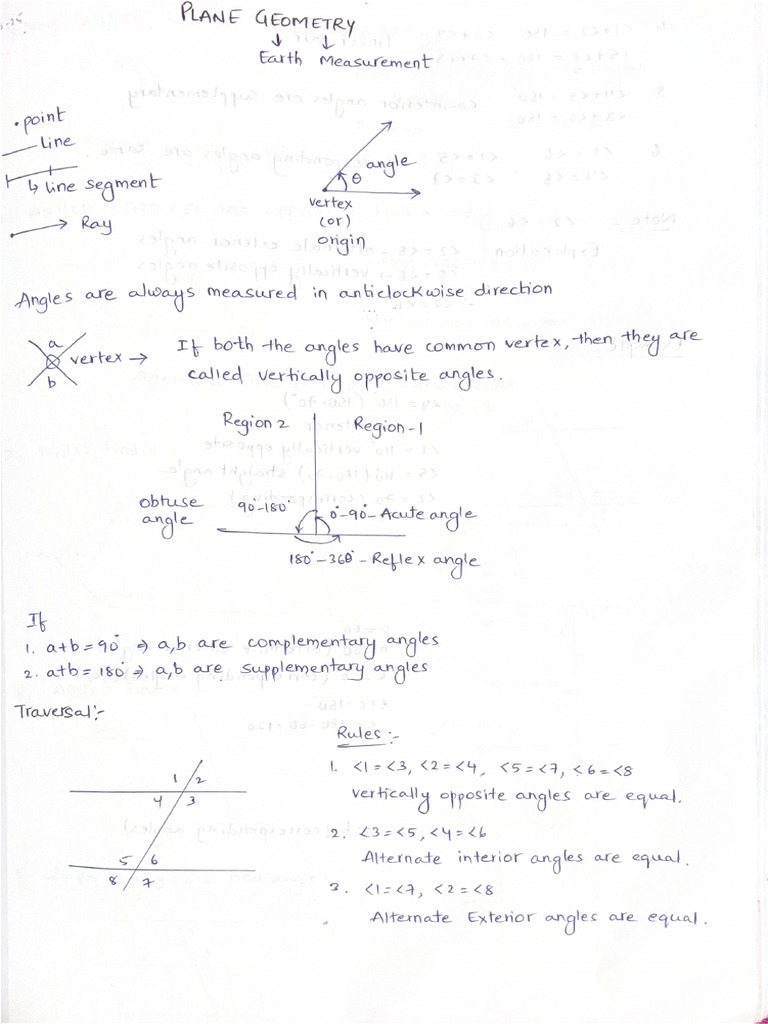 PLANE GEOMETRY
↓ ↓
Earth Measurement
• point
Line
↳ line segment
Ray
angle
θ
vertex
(or)
origin
Angles are always measured in anticlockwise direction
a
vertex →
b
If both the angles have common vertex, then they are
called vertically opposite angles.
Region 2 Region-1
obtuse
angle
90°-180°
0°-90°- Acute angle
180°-360° - Reflex angle
If
1. a+b = 90° ⇒ a,b are complementary angles
2. a+b = 180° ⇒ a,b are supplementary angles
Traversal:-
1 2
4 3
5 6
8 7
Rules:-
1. <1=<3, <2=<4, <5=<7, <6=<8
vertically opposite angles are equal.
2. <3=<5, <4=<6
Alternate interior angles are equal.
3. <1=<7, <2=<8
Alternate Exterior angles are equal.